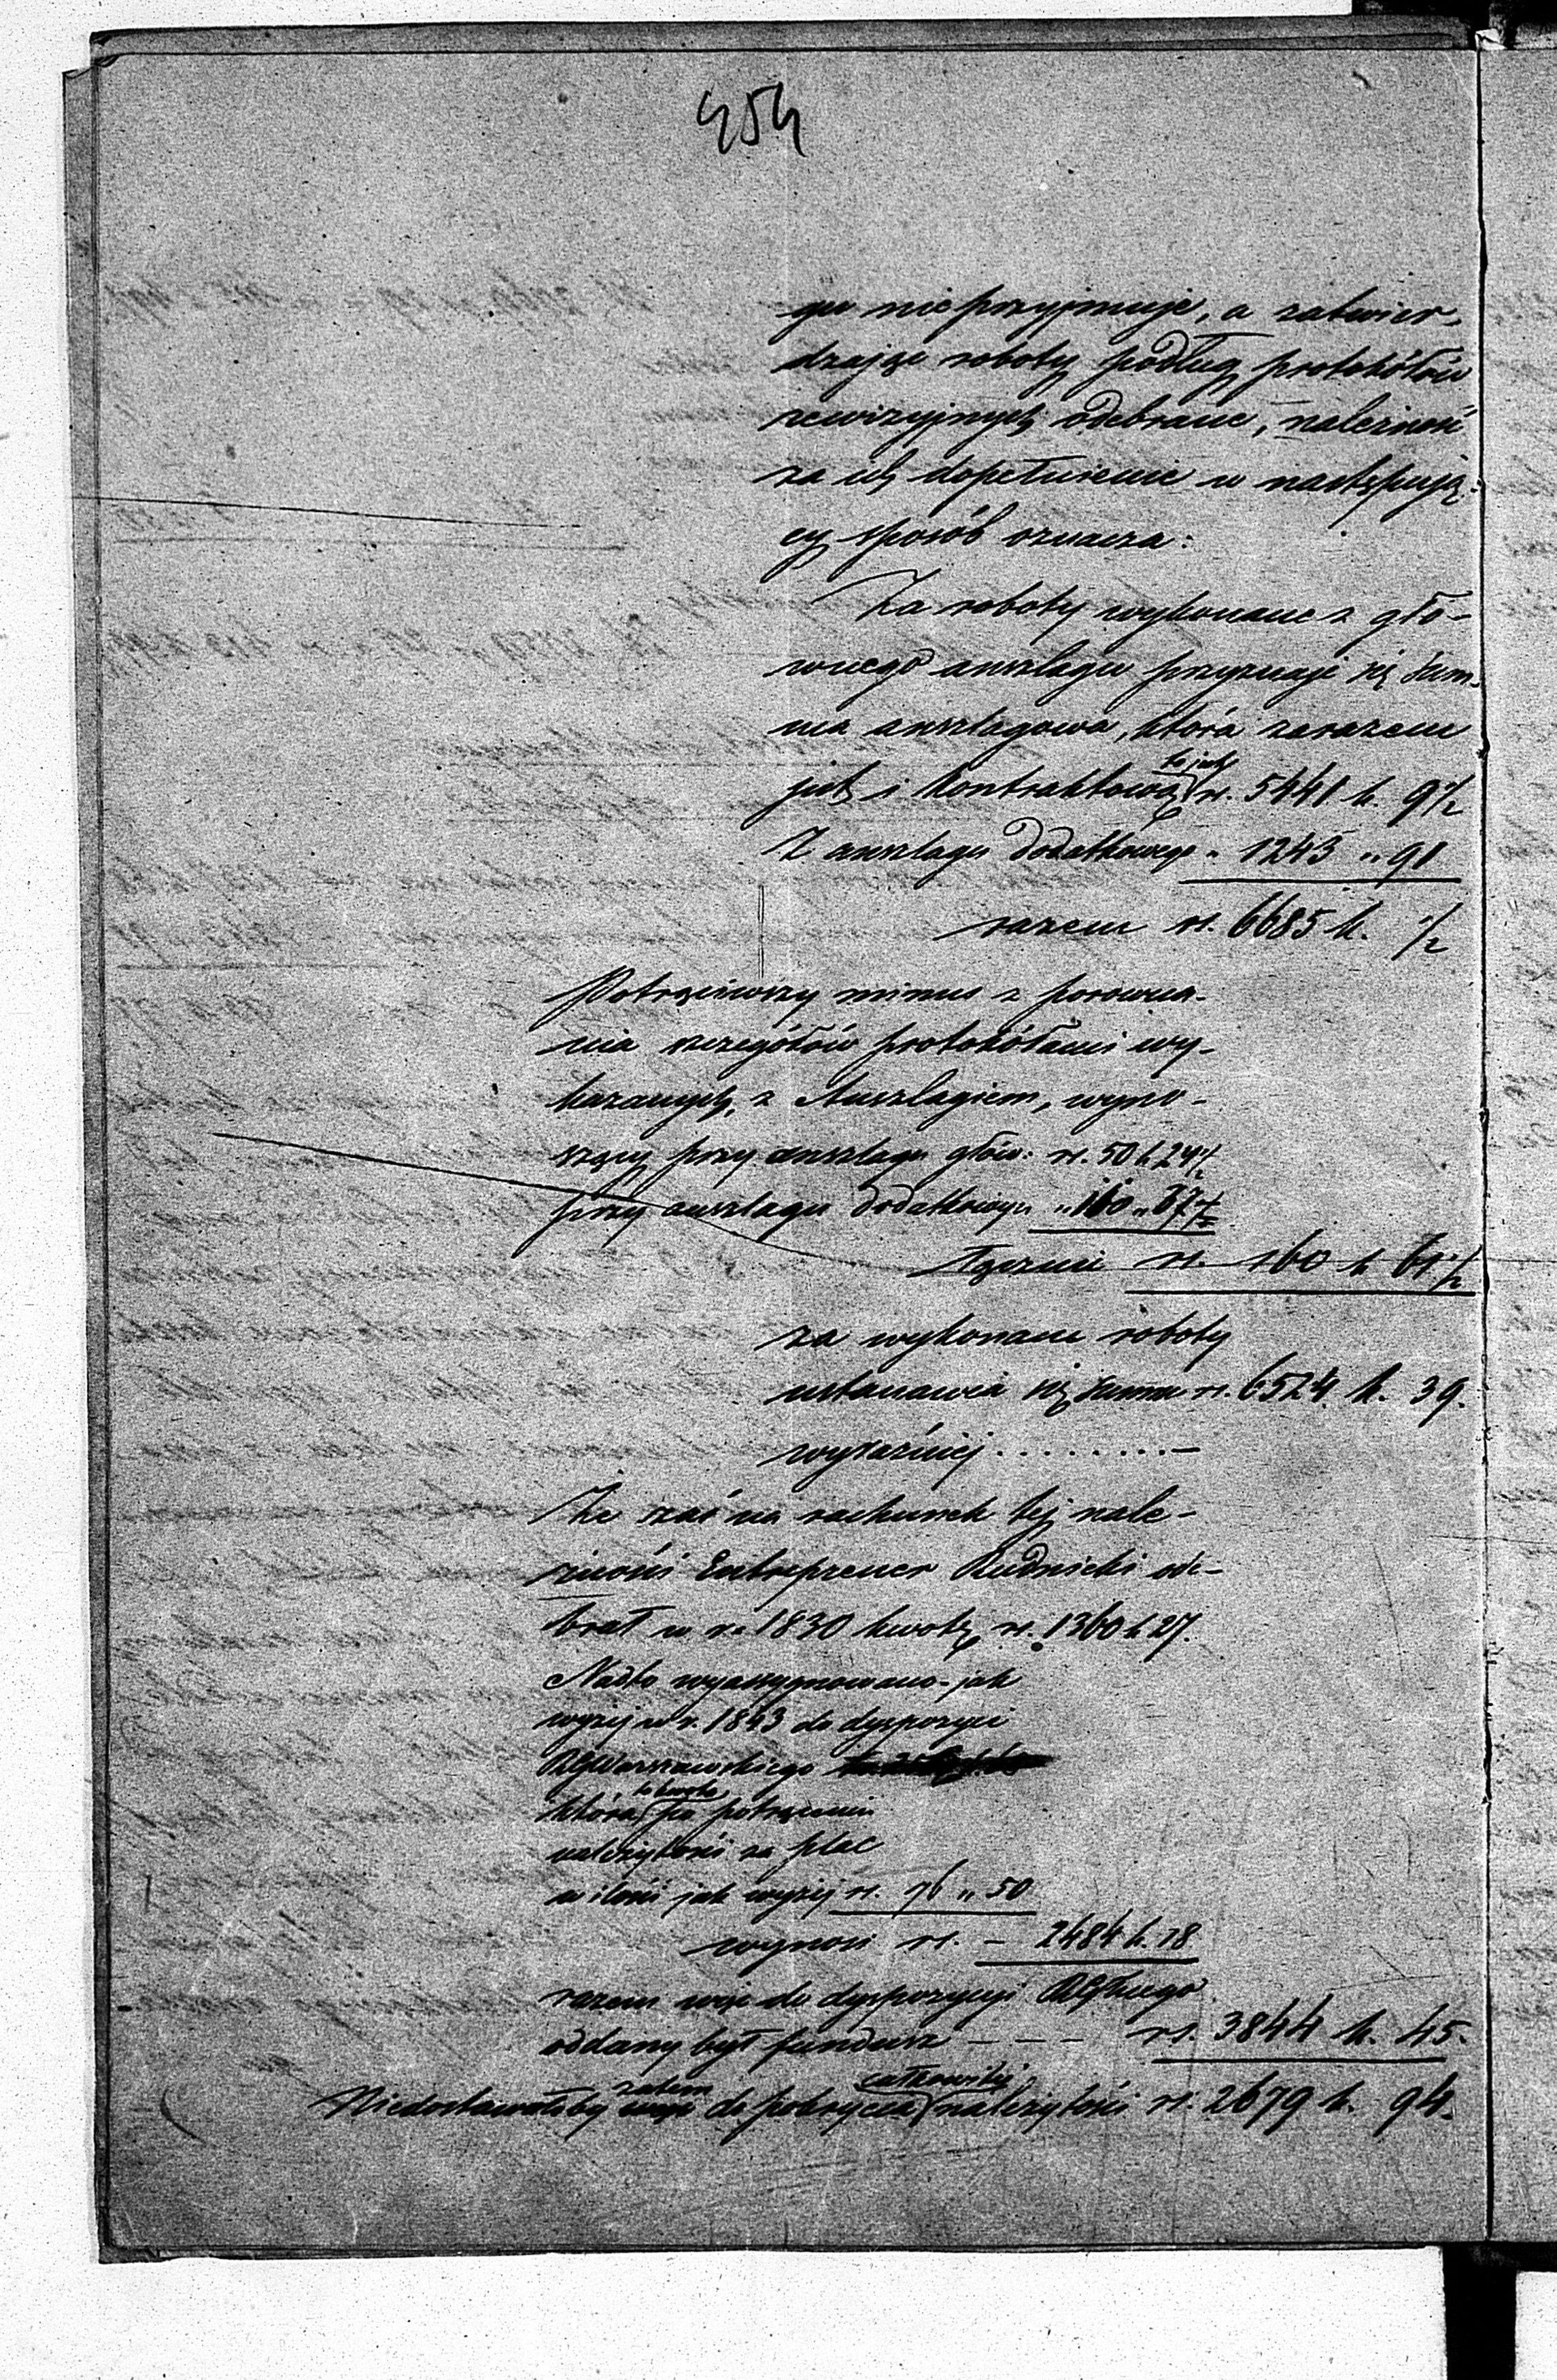 454
go nie przyjmuje, a zatwier-
dzając roboty podług protokółów
rewizyjnych odebrane, należność
za ich dopełnienie w następują-
cy sposób oznacza:
Za roboty wykonane z głó-
wnego anszlagu przyznaje się Sum-
ma anszlagowa, która zarazem
jest i kontraktową to jest rs. 5441 k. 9 1/2
Z anszlagu dodatkowego " 1243 " 91
razem rs. 6685 k. 1/2
Potrąciwszy minus z porówna-
nia szczegółów protokółami wy-
kazanych, z Anszlagiem, wyno-
szący przy anszlagu głów: rs. 50 k 24 1/2
przy anszlagu dodatkowym " 110 " 37
łącznie rs. 160 k 61 1/2
za wykonane roboty
ustanawia się summa rs. 6524. k. 39.
wyraźniej . . . . . . . . —
Że zaś na rachunek tej nale-
żności Entreprener Rudnicki ode-
brał w r. 1830 kwotę rs. 1360 k 27.
Nadto wyassygnowano jak
wyżej w r. 1843 do dyspozycji
RGWarszawskiego
która ta kwota po potrąceniu
należytości za plac
w ilości jak wyżej rs. 76 " 50
wynosi rs. — 2484 k. 18
razem więc do dyspozycji RGłnego
oddany był fundusz — — — rs. 3844 k. 45.
Niedostawałoby zatem do pokrycia całkowitej należytości rs. 2679 k. 94.